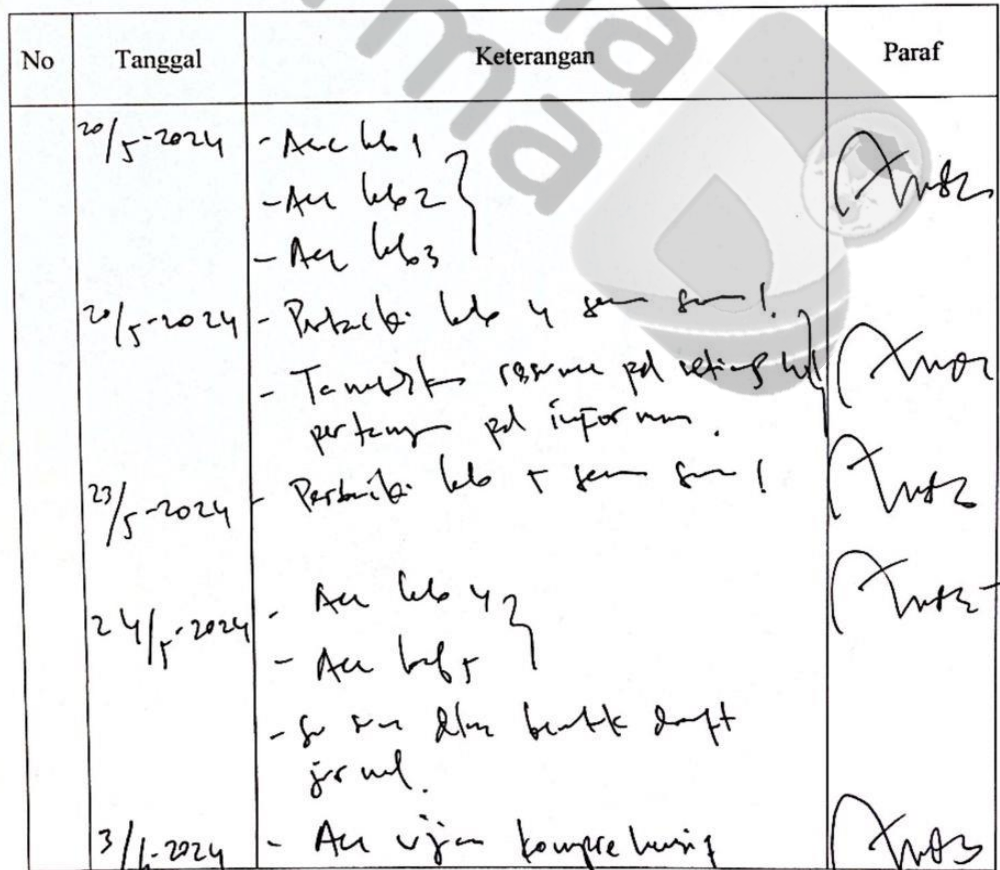 No Tanggal Keterangan Paraf
20/5-2024 - Acc bab 1
- Acc bab 2
- Acc bab 3
20/5-2024 - Perbaiki bab 4 saran!
- Tambahkan resume pd setiap
pertanyaan pd informan.
23/5-2024 - Perbaiki bab 5 saran!
24/5-2024 - Acc bab 4
- Acc bab 5
- dlm bentuk draft
jurnal.
3/6-2024 - Acc ujian komprehensif